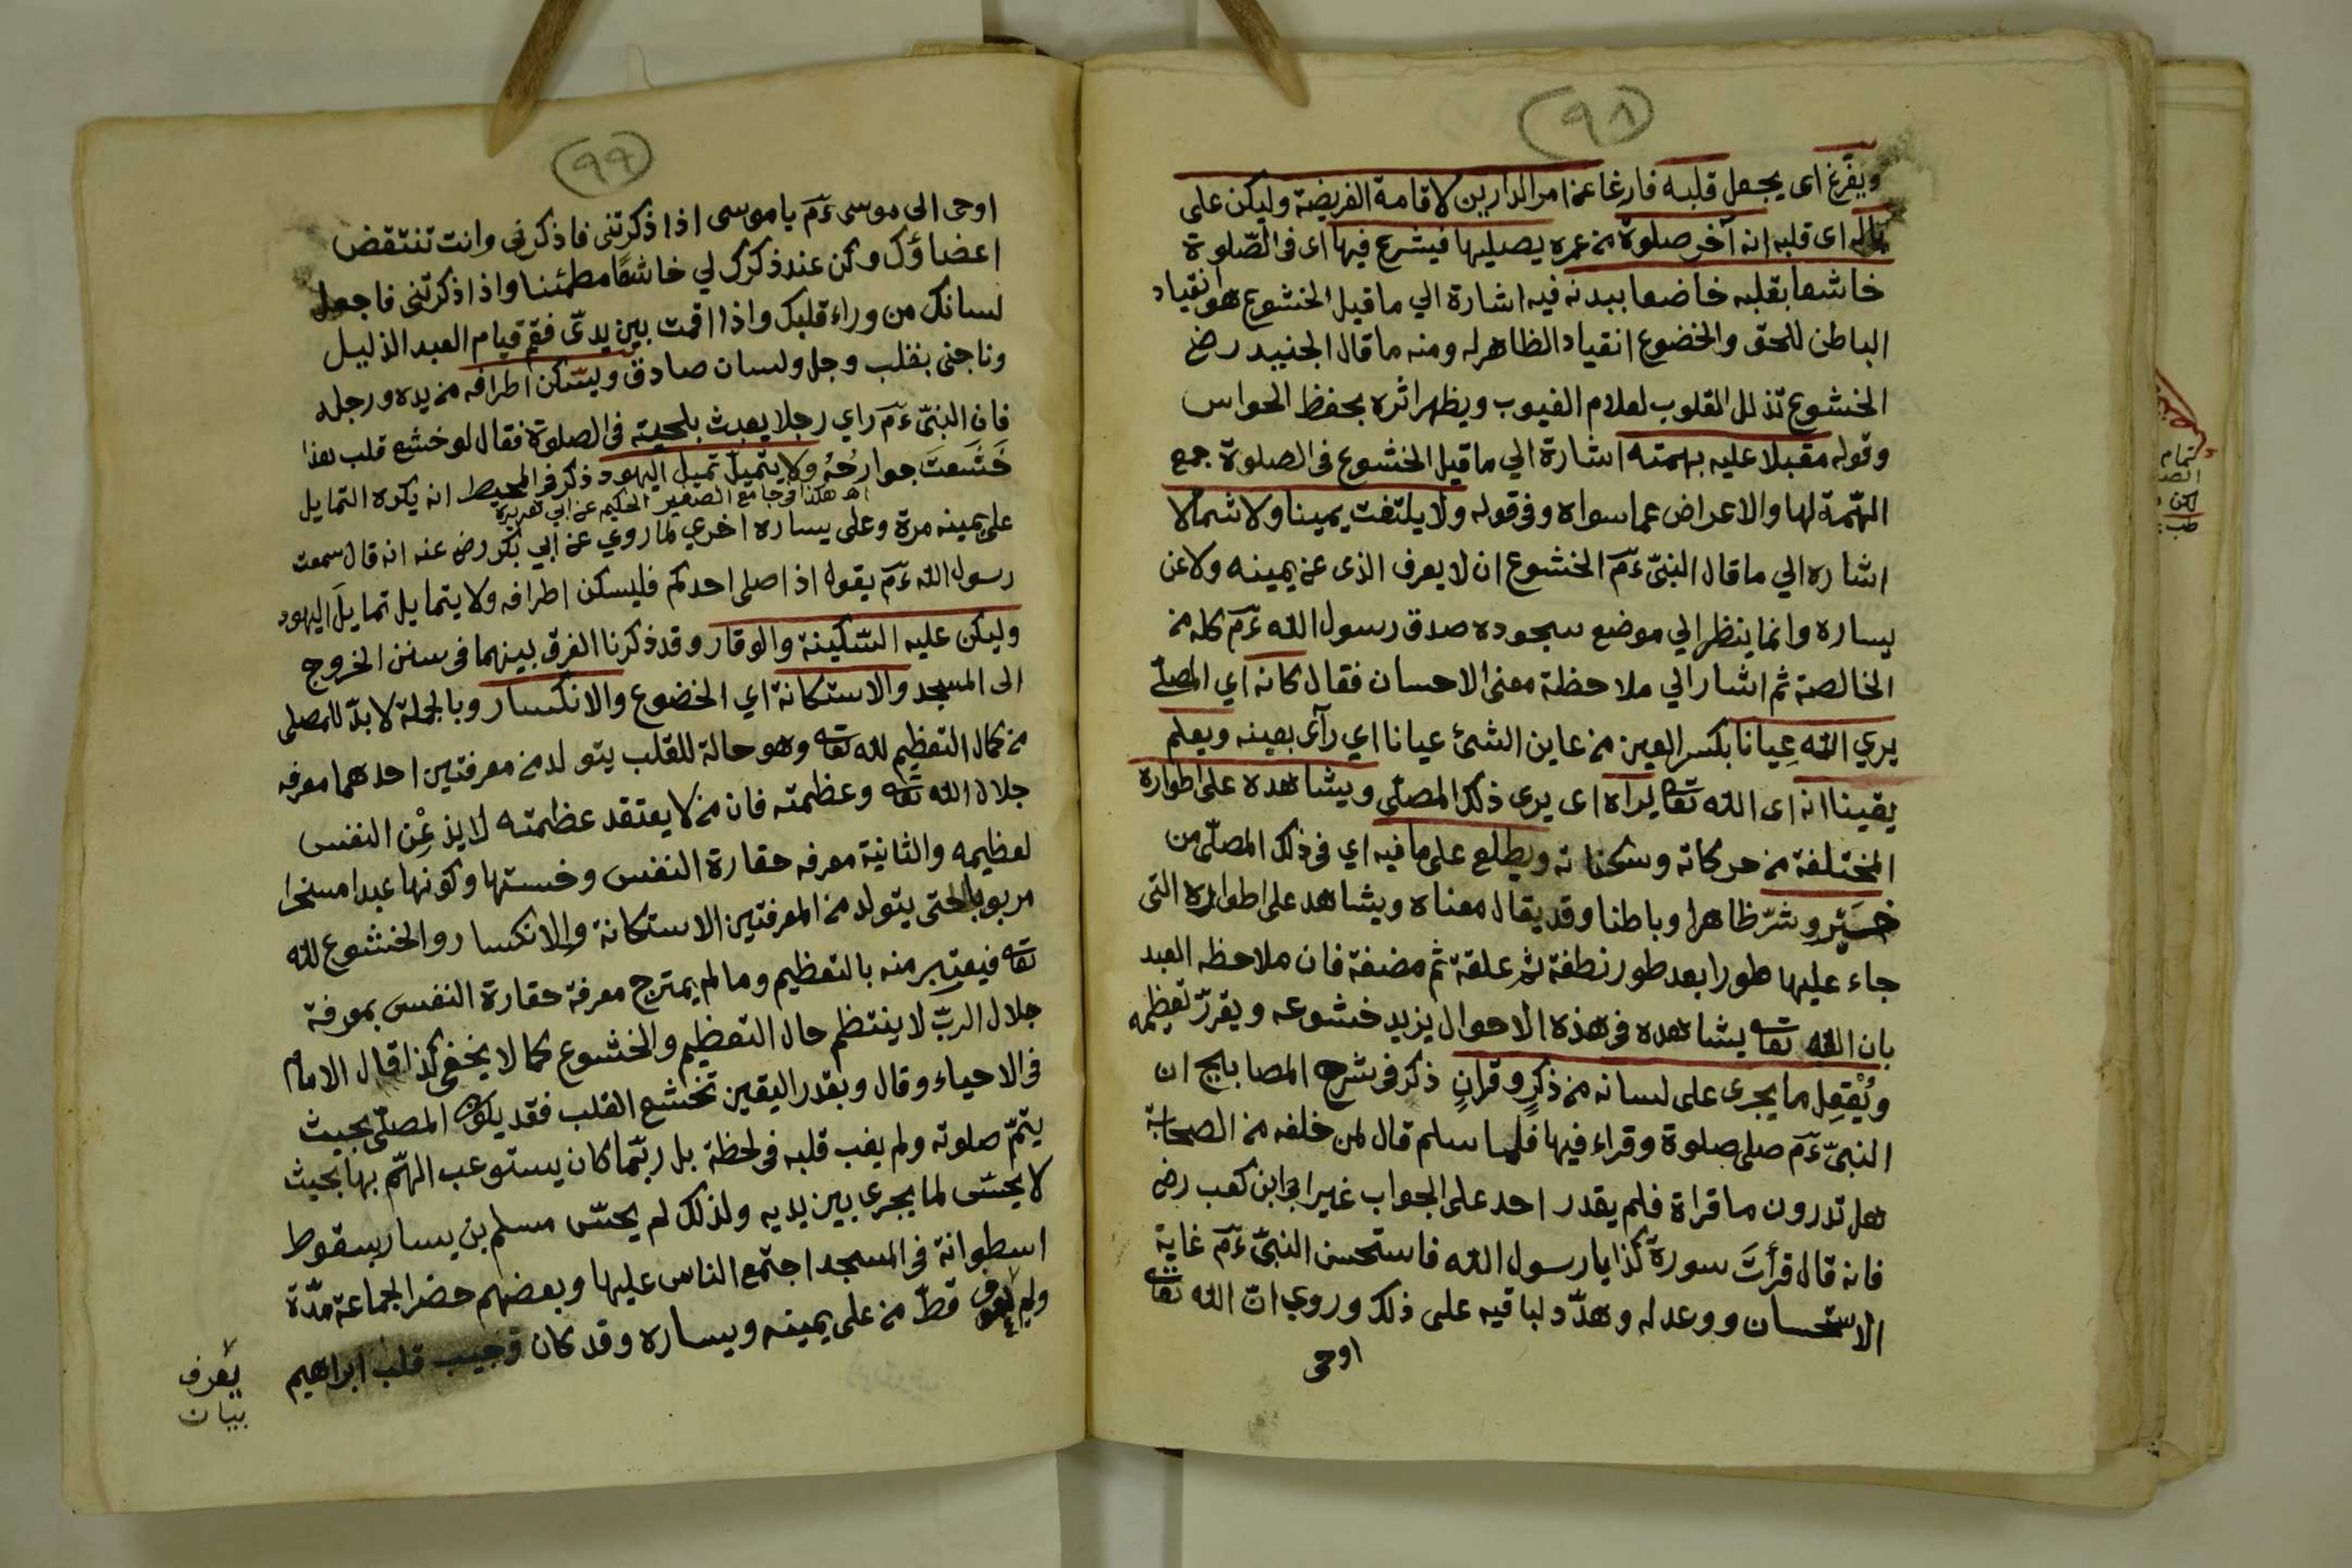 (٩٨)
ويفرّغ اى يجعل قلبه فارغا عن امر الدارين لاقامة الفريضة وليكن على
باله اى قلبه انه آخر صلوة من عمره يصليها فيشرع فيها اى فى الصّلوة
خاشعا بقلبه خاضعا ببدنه فيه اشارة الي ما قيل الخشوع هو انقياد
الباطن للحق والخضوع انقياد الظاهر له ومنه ما قال الجنيد رض
الخشوع تذلل القلوب لعلام الغيوب ويظهر اثره بحفظ الحواس
وقوله مقبلا عليه بهمته اشارة الي ما قيل الخشوع فى الصلوة جمع
الهّمة لها والاعراض عما سواه وفى قوله ولا يلتفت يمينا ولا شمالا
اشاره الي ما قال النبىّ ءمَ الخشوع ان لا يعرف الذى عن يمينه ولا عن
يساره وانما ينظر الي موضع سجوده صدق رسول الله ءمَ كله من
الخالصة ثم اشار الي ملاحظة معنى الاحسان فقال كانه اي المصلّے
يري الله عِيانا بكسر العين من عاين الشئ عيانا اي رآى بعينه ويعلم
يقينا انه اى الله تعالى يراه اى يرى ذلك المصلّى ويشاهده على اطواره
المختلفة من حركاته وسكناته ويطلع على ما فيه اي فى ذلك المصلّى من
خَيْرٍ وشرّ ظاهرا وباطنا وقد يقال معناه ويشاهد على اطواره التى
جاء عليها طورا بعد طور نطفة ثم علقة ثم مضغة فان ملاحظه العبد
بان الله تعا يشاهده فى هذه الاحوال يزيد خشوعه ويقرّر تعظيمه
ويُقْعِل ما يجرى على لسانه من ذكرٍ وقرانٍ ذكر فى شرح المصابيح ان
النبىّ ءمَ صلى صلوة وقراء فيها فلما سلم قال لمن خلفه من الصحابة
هل تدرون ما قراة فلم يقدر احد على الجواب غير ابى ابن كعب رض
فانه قال قرأتَ سورة كذا يا رسول الله فاستحسن النبىّ ءمَ غاية
الاستحسان ووعد له وهدّد لباقيه على ذلك وروي انّ الله تعا
اوحى
(٩٩)
اوحى الى موسى ءمَ يا موسى اذا ذكرتنى فاذكرنى وانت تنتقض
اعضاؤك وكن عند ذكرك لي خاشعًا مطمئنا واذا ذكرتنى فاجعل
لسانك من وراء قلبك واذا اقمت بين يدىّ فقم قيام العبد الذليل
وناجنى بقلب وجل ولسان صادق ويسّكن اطرافه من يده ورجله
فان النبىّ ءمَ راي رجلا يعبث بلحيته فى الصلوة فقال لو خشع قلب هذا
خَشَعتَ جوارحُهُ ولا يتميل تميل اليهود ذكر فى المحيط انه يكره التمايل
اه هكذا فى جامع الصغير الحكيم عن ابي هريرة
على يمينه مرة وعلى يساره اخري لما روي عن ابي بكر رض عنه انه قال سمعت
رسول الله ءمَ يقول اذا صلى احدكم فليسكن اطرافه ولا يتمايل تمايلَ اليهود
وليكن عليه السّكينة والوقار وقد ذكرنا الفرق بينهما فى سنن الخروج
الى المسجد والاستكانة اي الخضوع والانكسار وبالجملة لا بدّ للمصلى
من كمال التعظيم لله تعا وهو حالة للقلب يتولد من معرفتين احدهما معرفه
جلال الله تعا وعظمته فان من لا يعتقد عظمته لا يذعِْن النفس
لعظيمه والثانية معرفه حقارة النفس وخستها وكونها عبدا مسخرا
مربوبا حتى يتولد من المعرفتين الاستكانة والانكسار والخشوع لله
تعا فيعتبر منه بالتعظيم وما لم يمتزج معرفة حقارة النفس بمعرفة
جلال الربّ لا ينتظم حال التعظيم والخشوع كما لا يخفى كذا قال الامام
فى الاحياء وقال وبقدر اليقين تخشع القلب فقد يكون المصلّى بحيث
يتمّ صلوته ولم يغب قلبه فى لحظة بل ربّما كان يستوعب الهّم بها بحيث
لا يحسّ لما يجرى بين يديه ولذلك لم يحسّ مسلم بن يسار بسقوط
اسطوانة فى المسجد اجتمع الناس عليها وبعضهم حضر الجماعة مدّة
ولم يعرف قطّ من على يمينه ويساره وقد كان وجيب قلب ابراهيم
يعرف
بيان
تمام